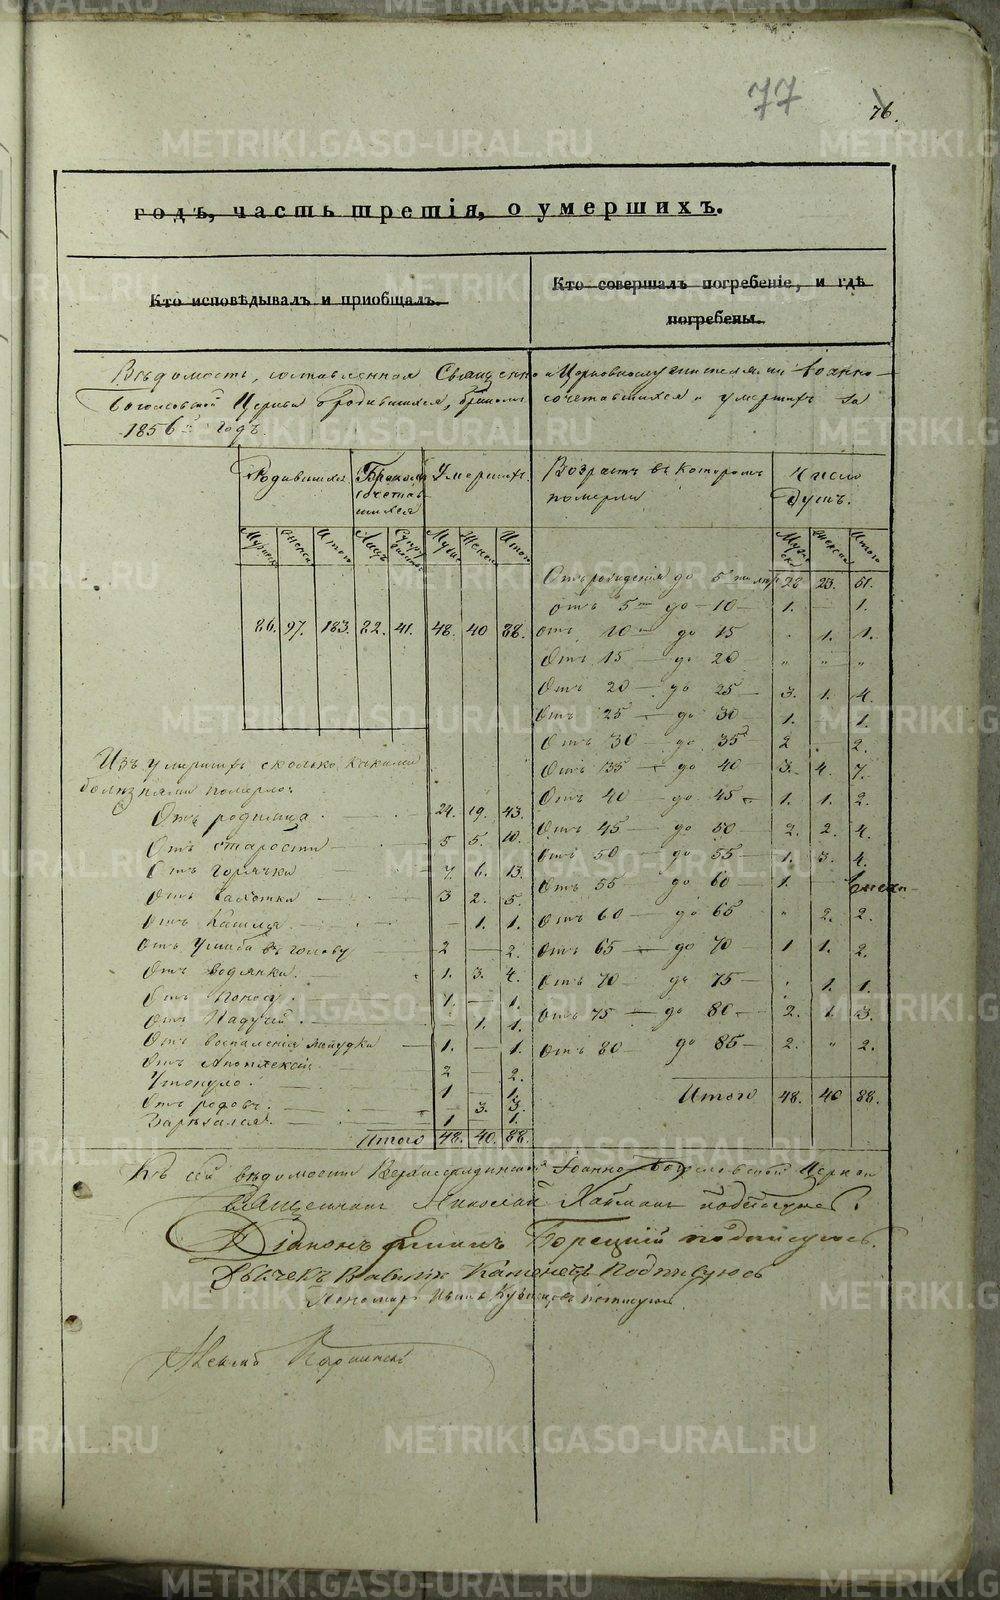 77
76.
годъ, часть третія, о умершихъ.
Кто исповѣдывалъ и приобщалъ.
Кто совершалъ погребеніе, и гдѣ погребены.
Вѣдомость, составленная Священно и Церковнослужителями Іоанно-
Богословской Церкви о родившихся, бракомъ сочетавшихся и умершихъ за
1856й годъ.
Родившихся Бракомъ сочетавшихся Умершихъ.
Мужеска Женска Итого Лицъ Супружествъ Мужес Женска Итого
86. 97. 183. 82. 41. 48. 40 88.
Возрастъ въ которомъ померли
Число душъ.
Мужеска Женска Итого
Отъ рожденія до 5ти лѣтъ 28 23. 51.
отъ 5ти до 10 1. — 1.
отъ 10ти до 15 „ 1. 1.
Отъ 15 — до 20 „ „ „
Отъ 20 — до 25 — 3. 1. 4.
Отъ 25 — до 30 — 1. — 1.
Отъ 30 — до 35 2 — 2.
Отъ 35 — до 40 — 3. 4. 7.
Отъ 40 — до 45 — 1. 1. 2.
Отъ 45 — до 50 — 2. 2. 4.
Отъ 50 — до 55 — 1. 3. 4.
Отъ 55 до 60 — 1. —
Отъ 60 — до 65 „ 2. 2.
Отъ 65 — до 70 — 1 1. 2.
Отъ 70 — до 75 — „ 1. 1.
Отъ 75 — до 80 — 2. 1. 3.
Отъ 80 — до 85 — 2. „ 2.
Итого 48. 40 88.
Изъ умершихъ сколько какими
болѣзнями померло:
Отъ родимца 24. 19. 43.
Отъ старости 5 5. 10.
Отъ горячки 7. 6. 13.
Отъ чахотки 3 2. 5.
Отъ Кашля — 1. 1.
Отъ Ушиба въ голову 2 — 2.
Отъ водянки 1. 3. 4.
Отъ поноса 1. — 1.
Отъ Падучей — 1. 1.
Отъ воспаленія желудка 1. — 1.
Отъ Апоплексіи 2 — 2.
Утонуло 1 — 1.
Отъ родовъ — 3. 3.
Зарѣзался 1 1.
Итого 48. 40. 88.
Къ сей вѣдомости Іоанно Богословской Церкви
Священникъ Николай подписуюсь.
Діаконъ Борецкій подписуюсь.
Дьячекъ Подписуюсь
Пономарь Иванъ подписуюсь
METRIKI.GASO-URAL.RU